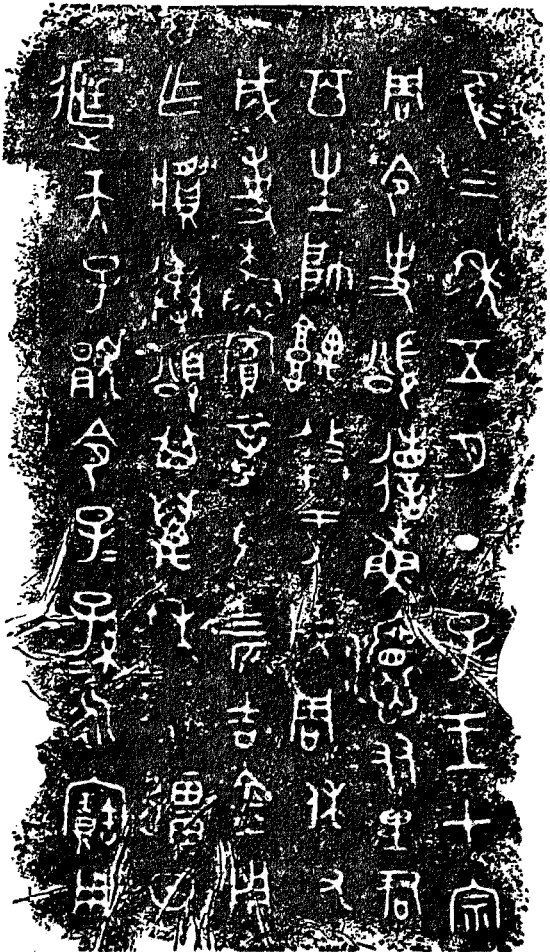 隹三年五月丁巳王才宗
周令史頌省穌姻友里君
百生帥堣盩于成周休又
成事穌賓章馬四匹吉金用
乍䵼彝頌其萬年無疆日
𨒌天子顯令子=孫=永寶用